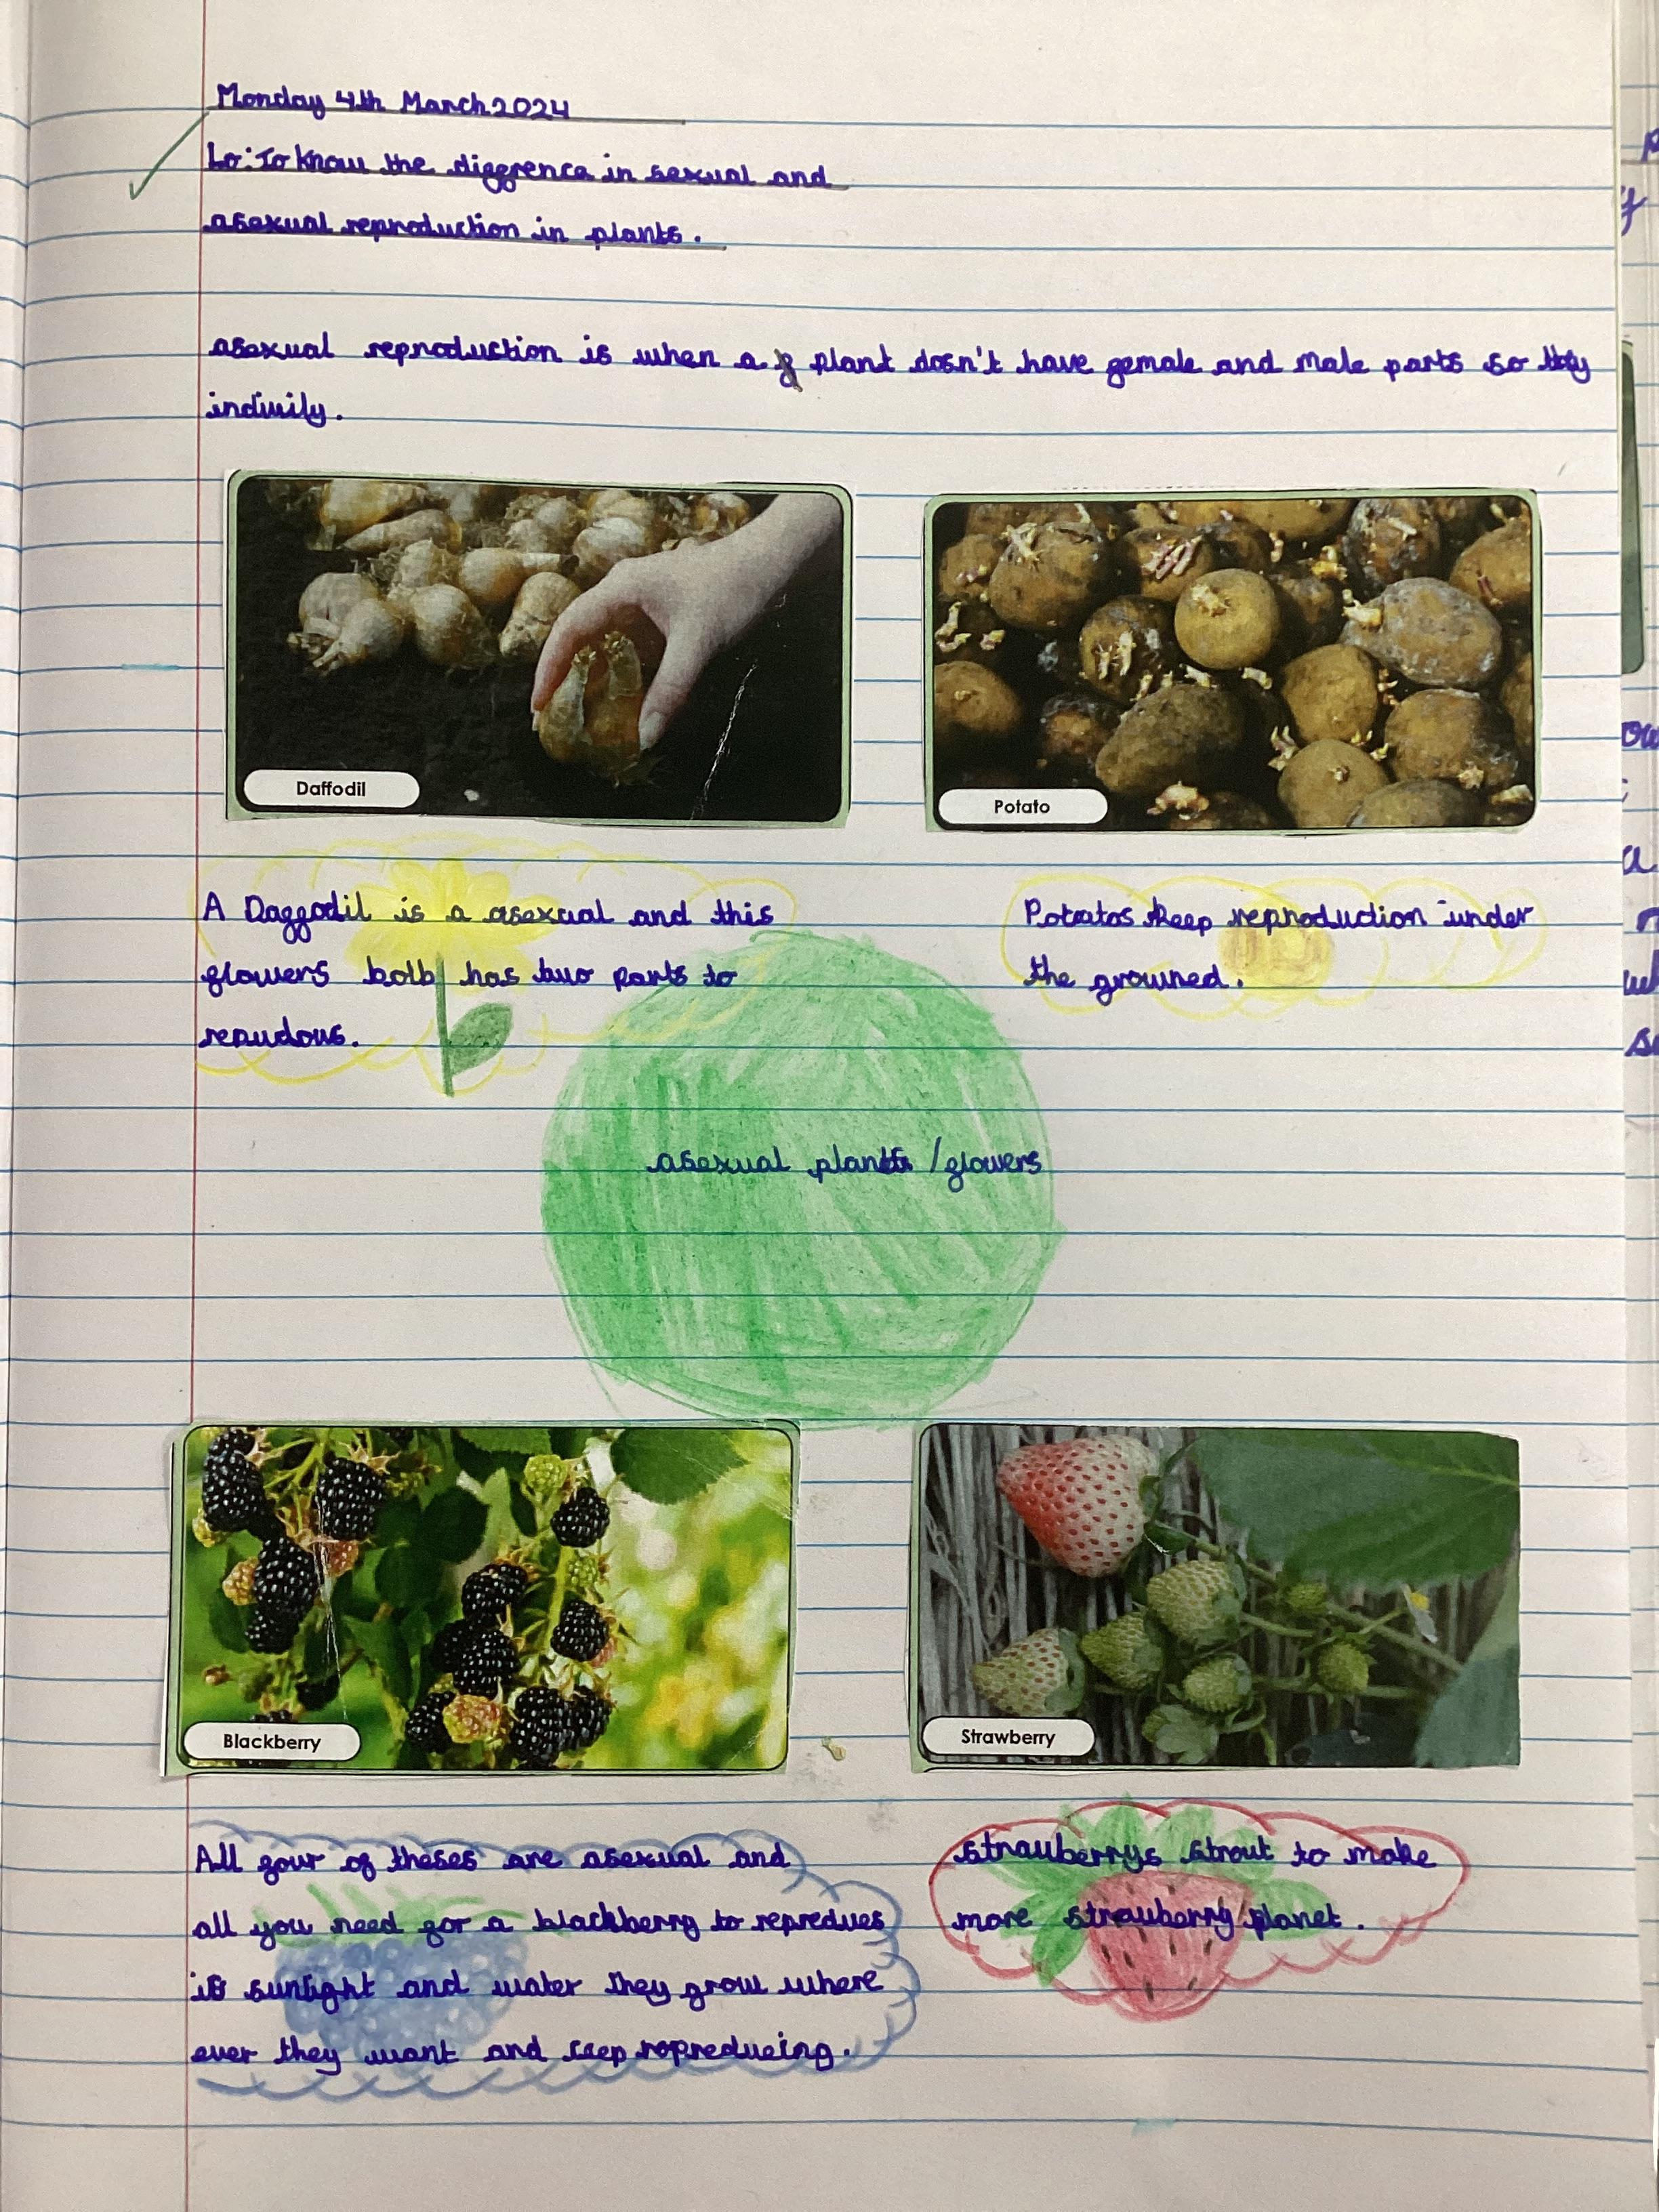 Monday 4th March 2024
Lo: To know the diffrence in sexual and
asexual reproduction in plants.
asexual reproduction is when a plant dosn't have female and male parts so they
indivily.
Daffodil
Potato
A Daffodil is a asexual and this
flowers bolb has two parts to
repudous.
Potatos keep reproduction under
the grouned.
asexual plants / flowers
Blackberry
Strawberry
All four of theses are asexual and
all you need for a blackberry to repredues
is sunlight and water they grow where
ever they want and keep repredueing.
strawberrys strout to make
more strawberry planet.